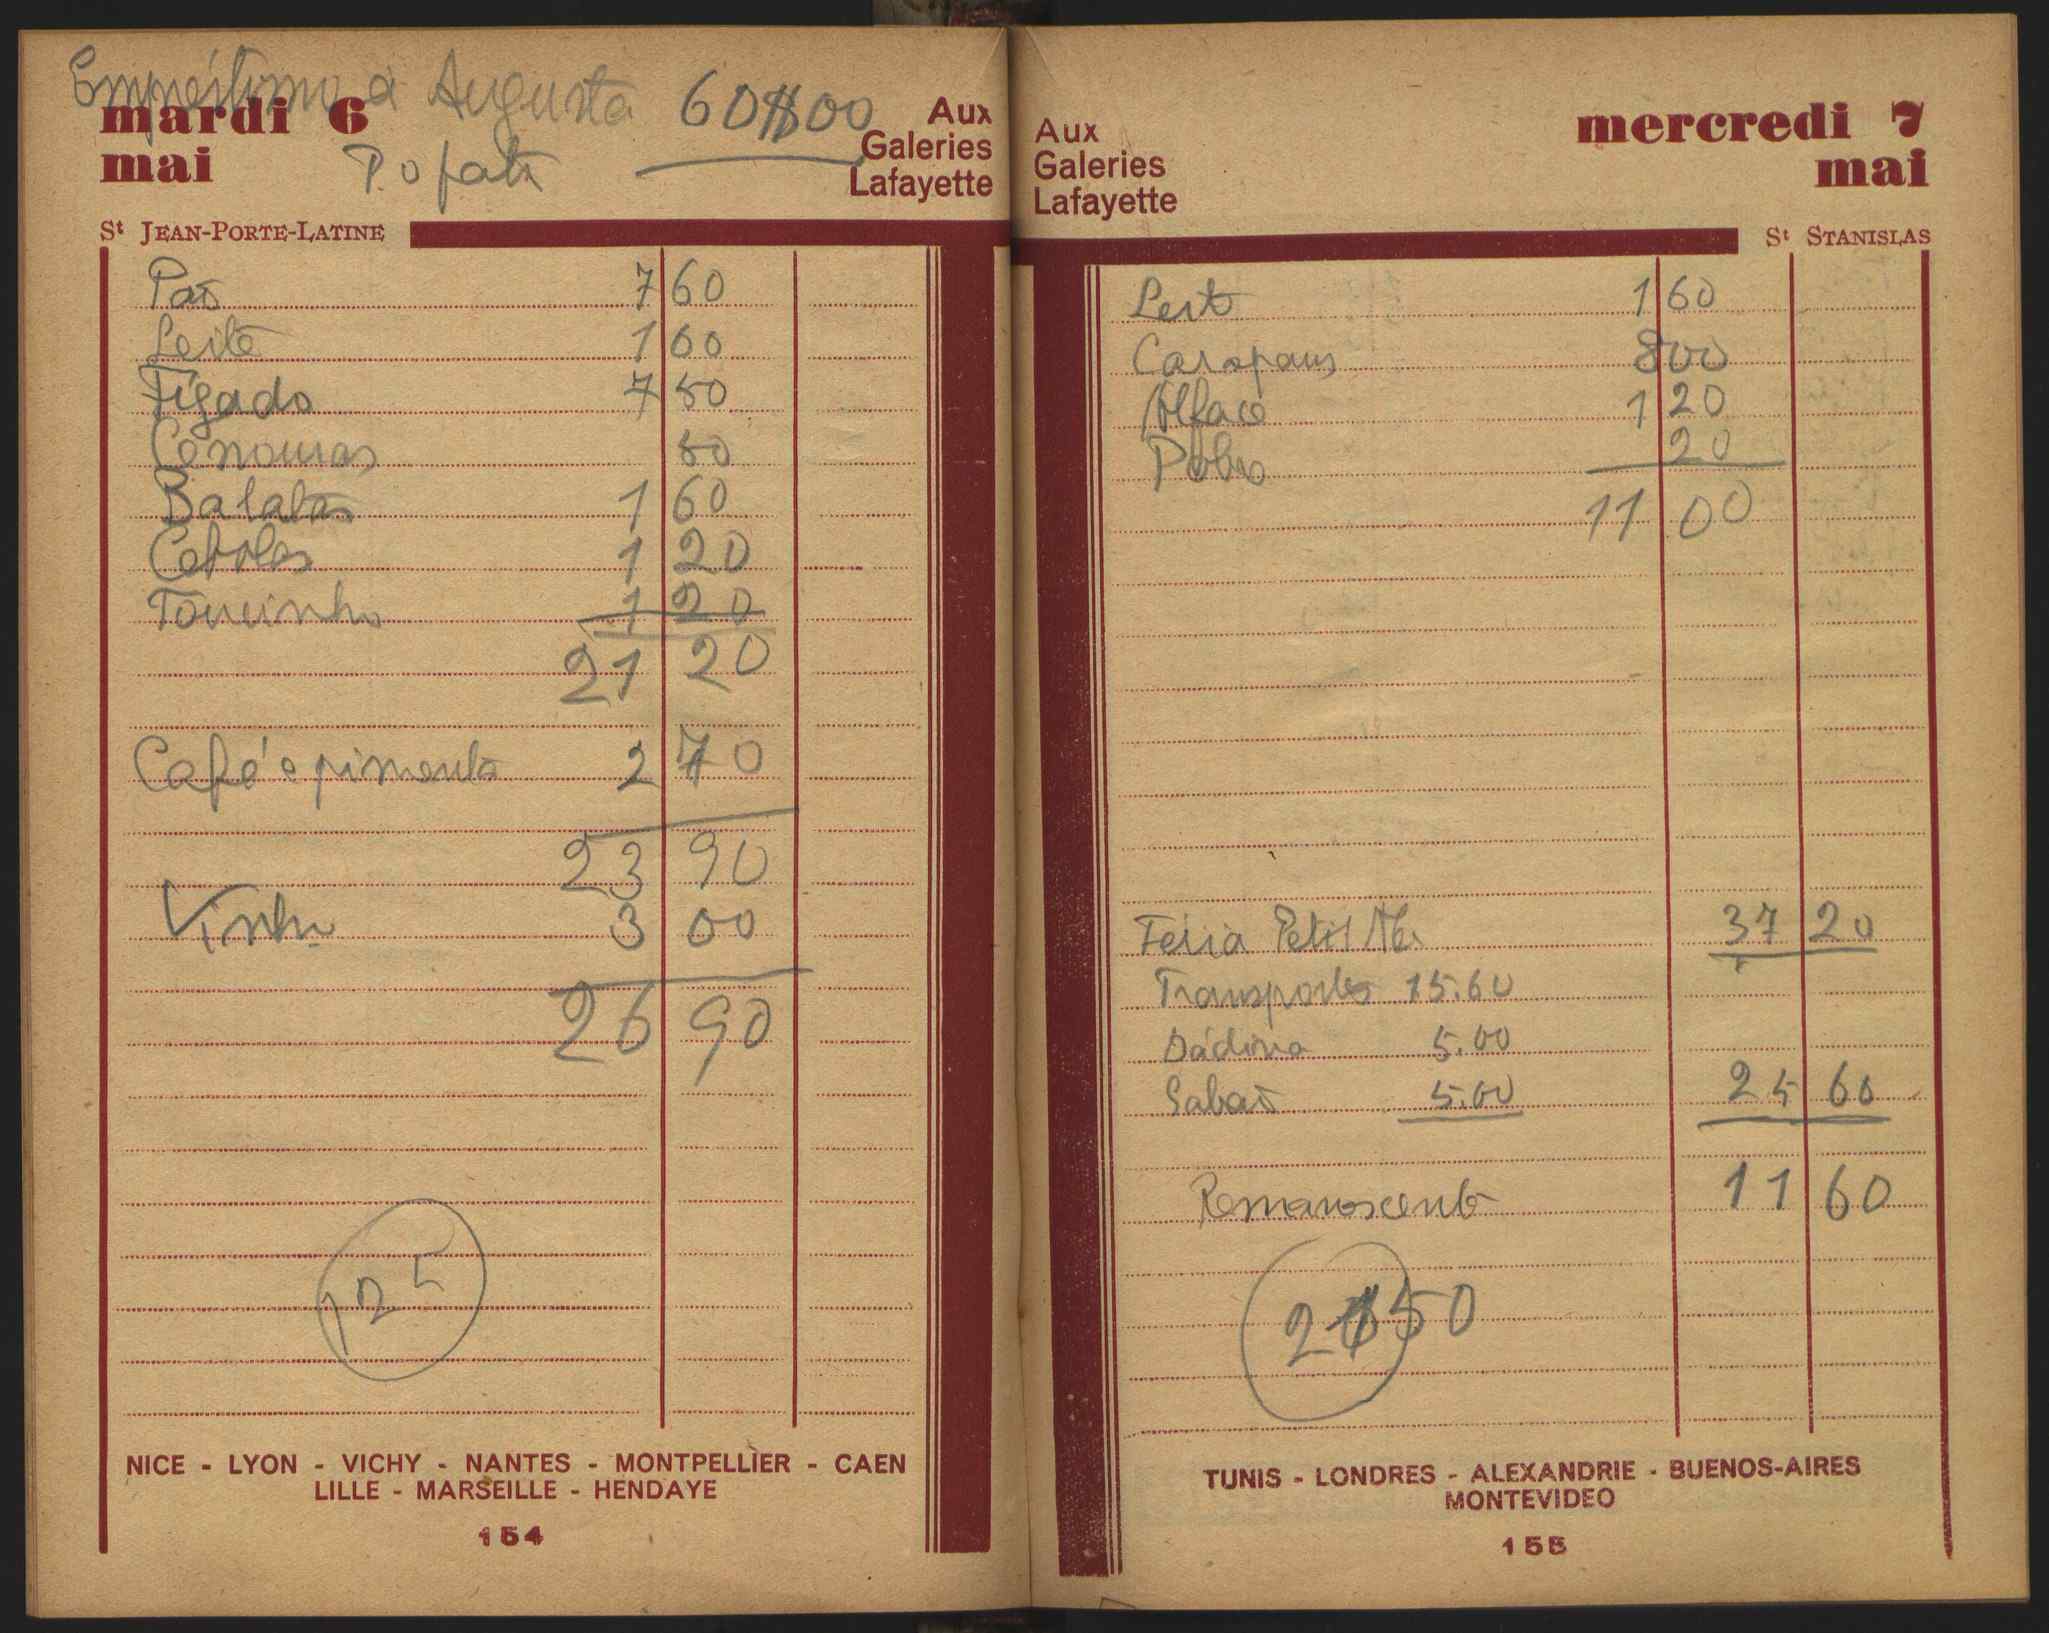 Empréstimo á Augusta 60$00
mardi 6
mai
P. o fato
Aux
Galeries
Lafayette
St JEAN-PORTE-LATINE
Pão 7 60
Leite 1 60
Figado 7 50
Cenouras 50
Batatas 1 60
Cebolas 1 20
Toucinho 1 20
21 20
Café e pimenta 2 70
23 90
Vinho 3 00
26 90
125
NICE - LYON - VICHY - NANTES - MONTPELLIER - CAEN
LILLE - MARSEILLE - HENDAYE
154
Aux
Galeries
Lafayette
mercredi 7
mai
St STANISLAS
Leite 1 60
Carapaus 8 00
Alface 1 20
Pobre 20
11 00
Feria 37 20
Transportes 15.60
Dádiva 5.00
Sabão 5.00 25 60
Remanescente 11 60
2$50
TUNIS - LONDRES - ALEXANDRIE - BUENOS-AIRES
MONTEVIDEO
155